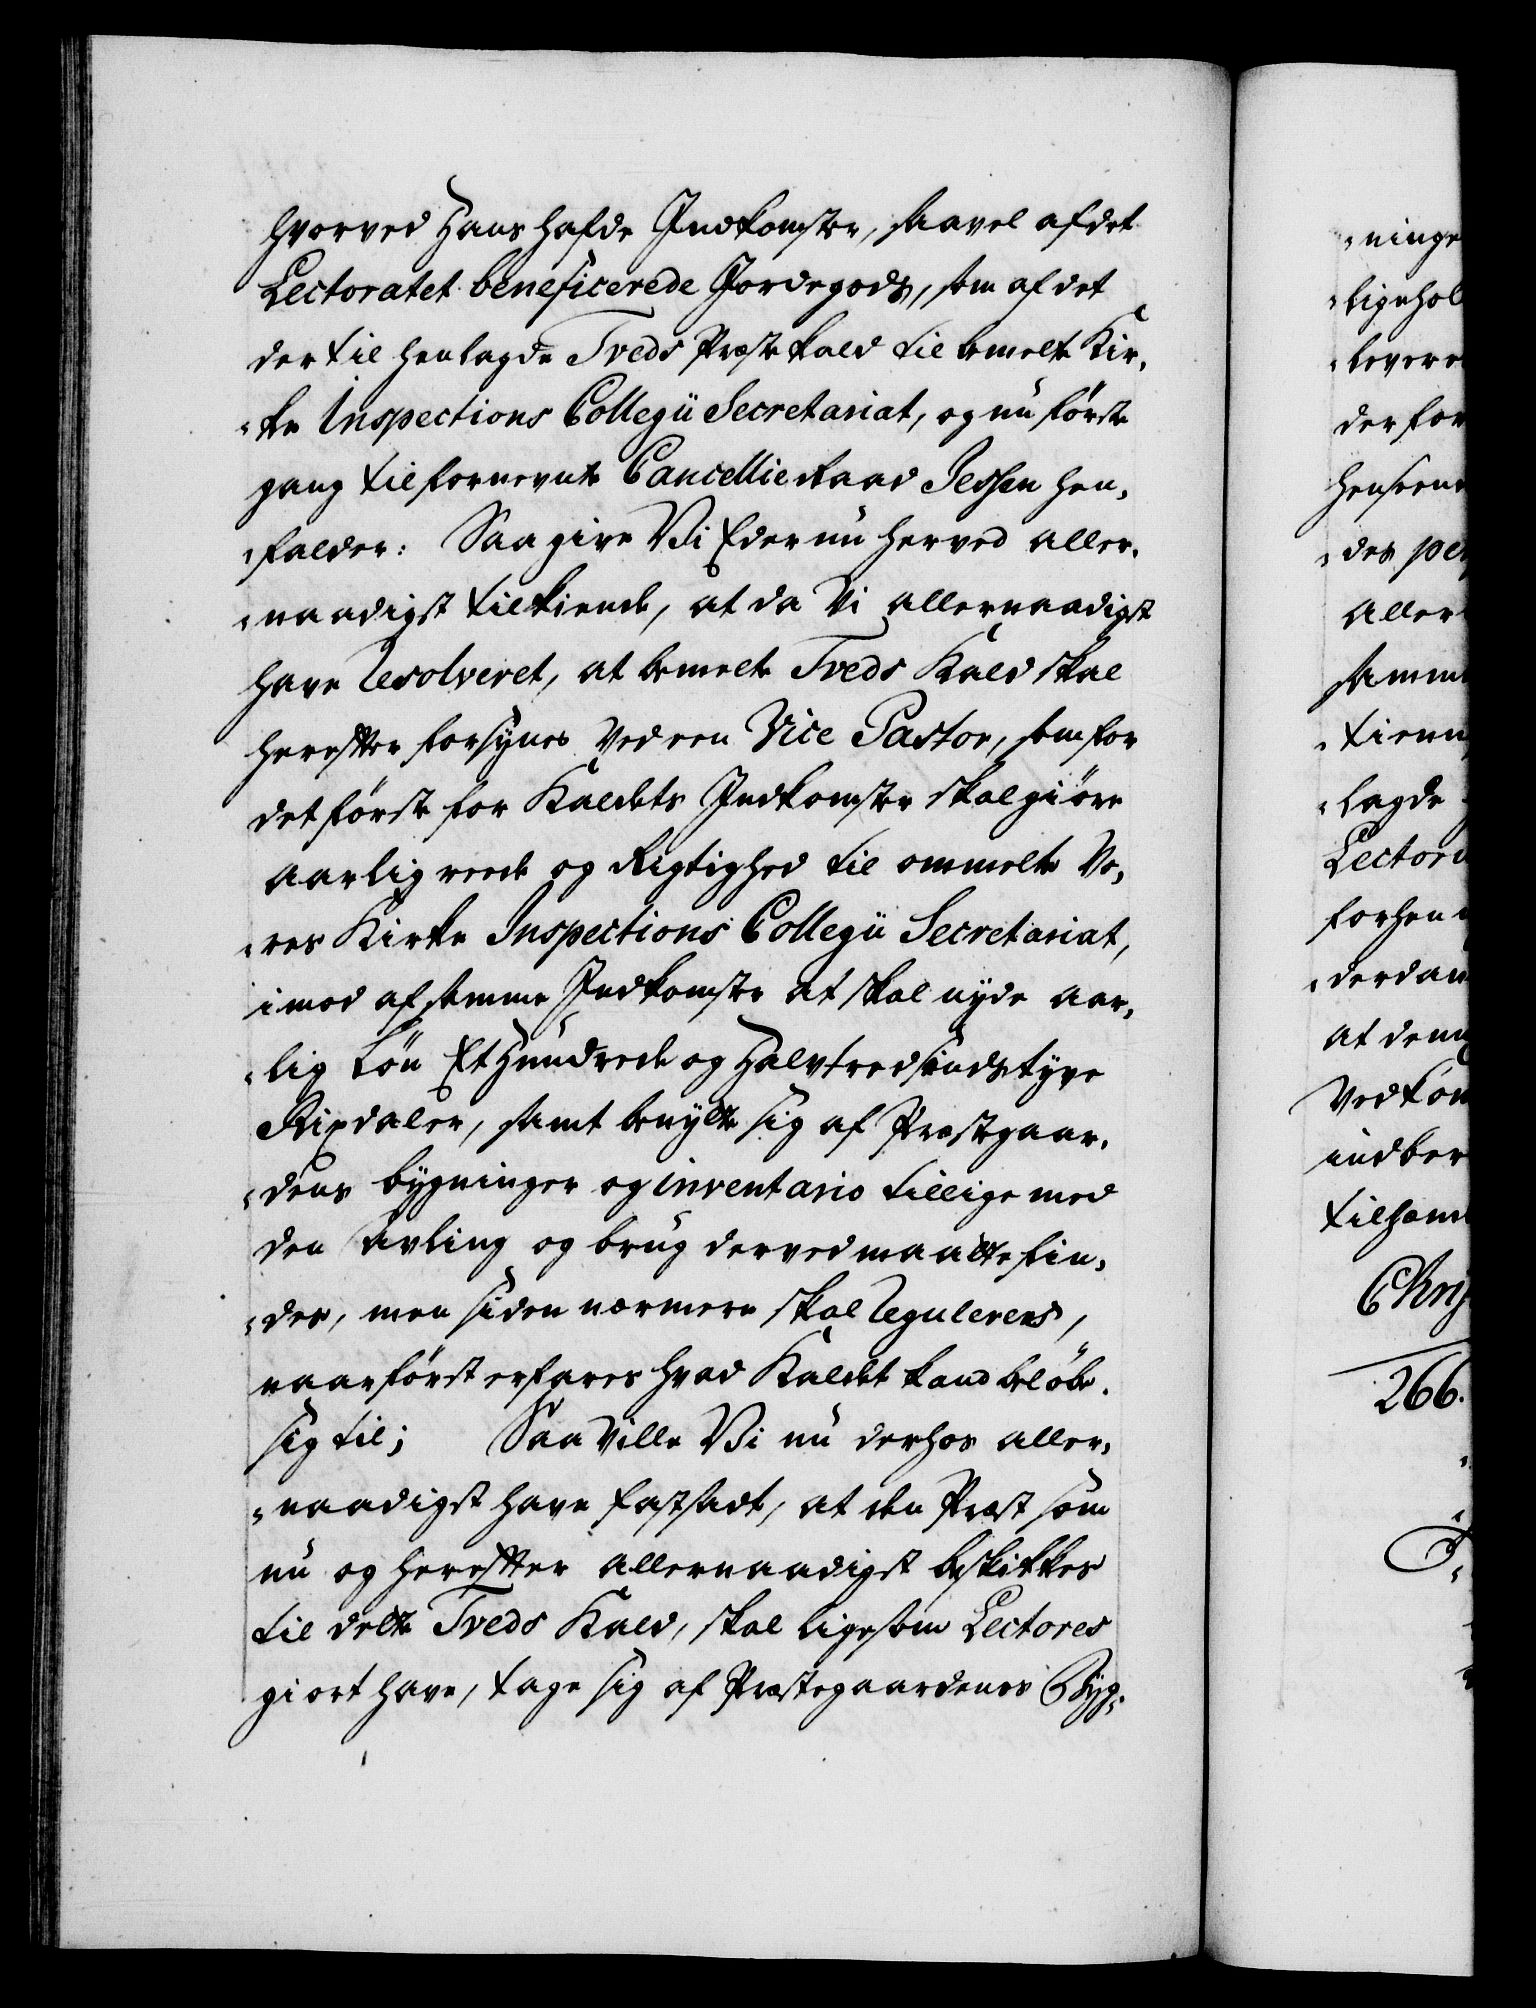 hvorved Hans hafde Indkomster, saavel af det
Lectoratet beneficerede Jordegods, som af det
der til henlagde Tveds Præstekald til bemelte Kir-
-ke Inspections Collegii Secretariat, og nu første
gang til fornevnte Cancellie Raad Jessen hen-
-falder: Saa give Vi Eder nu herved aller-
-naadigst tilkiende, at da Vi allernaadigst
have resolveret, at bemelte Tveds Kald skal
herefter forsynes ved een Vice Pastor, som for
det første for Kaldets Indkomster skal giöre
aarlig reede og Rigtighed til ommelte Vo-
-res Kirke Inspections Collegii Secretariat,
imod af samme Indkomster at skal nyde aar-
-lig Løn Et Hundrede og Halvtredsindstyve
Rixdaler, samt benytte sig af Præstegaar-
-dens bygninger og inventario tillige med
den Avling og brug derved maatte fin-
-des, men siden nærmere skal reguleres,
naar først erfares hvad Kaldet kand beløbe
sig til; Saa Ville Vi nu derhos aller-
-naadigst have fastsadt, at den Præst som
nu og herefter allernaadigst beskikkes
til dette Tveds Kald, skal ligesom Lectores
giort have, tage sig af Præstegaardenes Byg-
-ninge
-ligehol
-levere
der for
henseene
-des pe
aller
samme
-tienn
-lagde
Lector
forhen
-derdan
at dem
Vedkom
indber
tilsam
Chri
266.